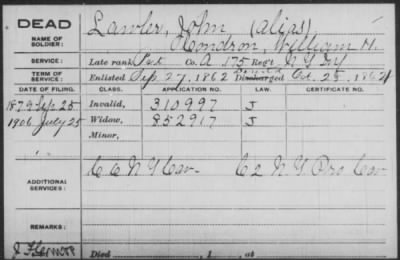 DEAD
NAME OF SOLDIER:
Lawler, John (alias)
Condron, William H.
SERVICE:
Late rank Pvt Co. A 175 Reg't N.Y. Inf
TERM OF SERVICE:
Enlisted Sep 27, 1862 Discharged Oct. 25, 1862
DATE OF FILING. CLASS. APPLICATION NO. LAW. CERTIFICATE NO.
1879 Sep 25 Invalid, 310997 J
1906 July 25 Widow, 852917 J
Minor,
ADDITIONAL SERVICES:
C. C N Y Cav C 2 N. Y. Pro Cav
REMARKS:
Died , 1 , at